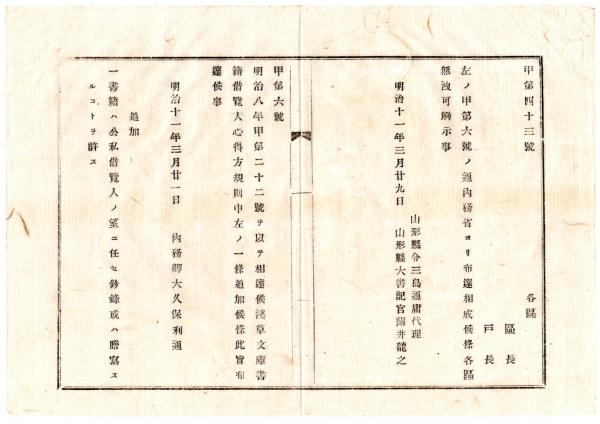 甲第四十三號
各區
區長
戸長
左ノ甲第六號ノ通內務省ヨリ布達相成候條各區
無洩可觸示事
明治十一年三月廿九日
山形縣令三島通庸代理
山形縣大書記官薄井龍之
甲第六號
明治八年甲第二十二號ヲ以テ相達候淺草文庫書
籍借覽人心得方規則中左ノ一條追加候條此旨布
達候事
明治十一年三月廿一日
內務卿大久保利通
追加
一書籍ハ公私借覽人ノ望ニ任セ鈔錄或ハ謄寫ス
ルコトヲ許ス